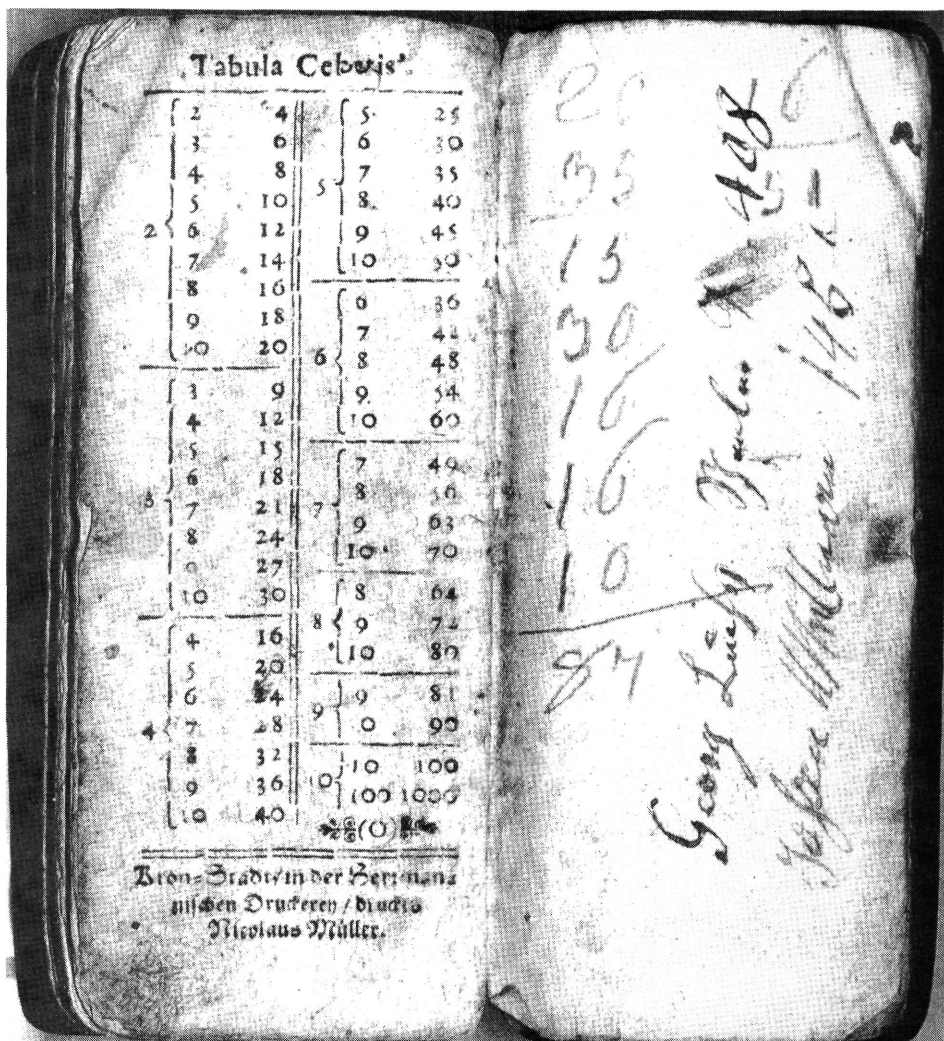 Tabula Cebetis
2 { 2 4
3 6
4 8
5 10
6 12
7 14
8 16
9 18
10 20
3 { 3 9
4 12
5 15
6 18
7 21
8 24
27
10 30
4 { 4 16
5 20
6 24
7 28
8 32
9 36
10 40
5 { 5 25
6 30
7 35
8 40
9 45
10 50
6 { 6 36
7 42
8 48
9 54
10 60
7 { 7 49
8 56
9 63
10 70
8 { 8 64
9 72
10 80
9 { 9 81
0 90
10 { 10 100
100 1000
(O)
Kron-Stadt/in der
nischen Druckerey / druckts
Nicolaus Müller.
35
15
30
16
16
10
Georg
408